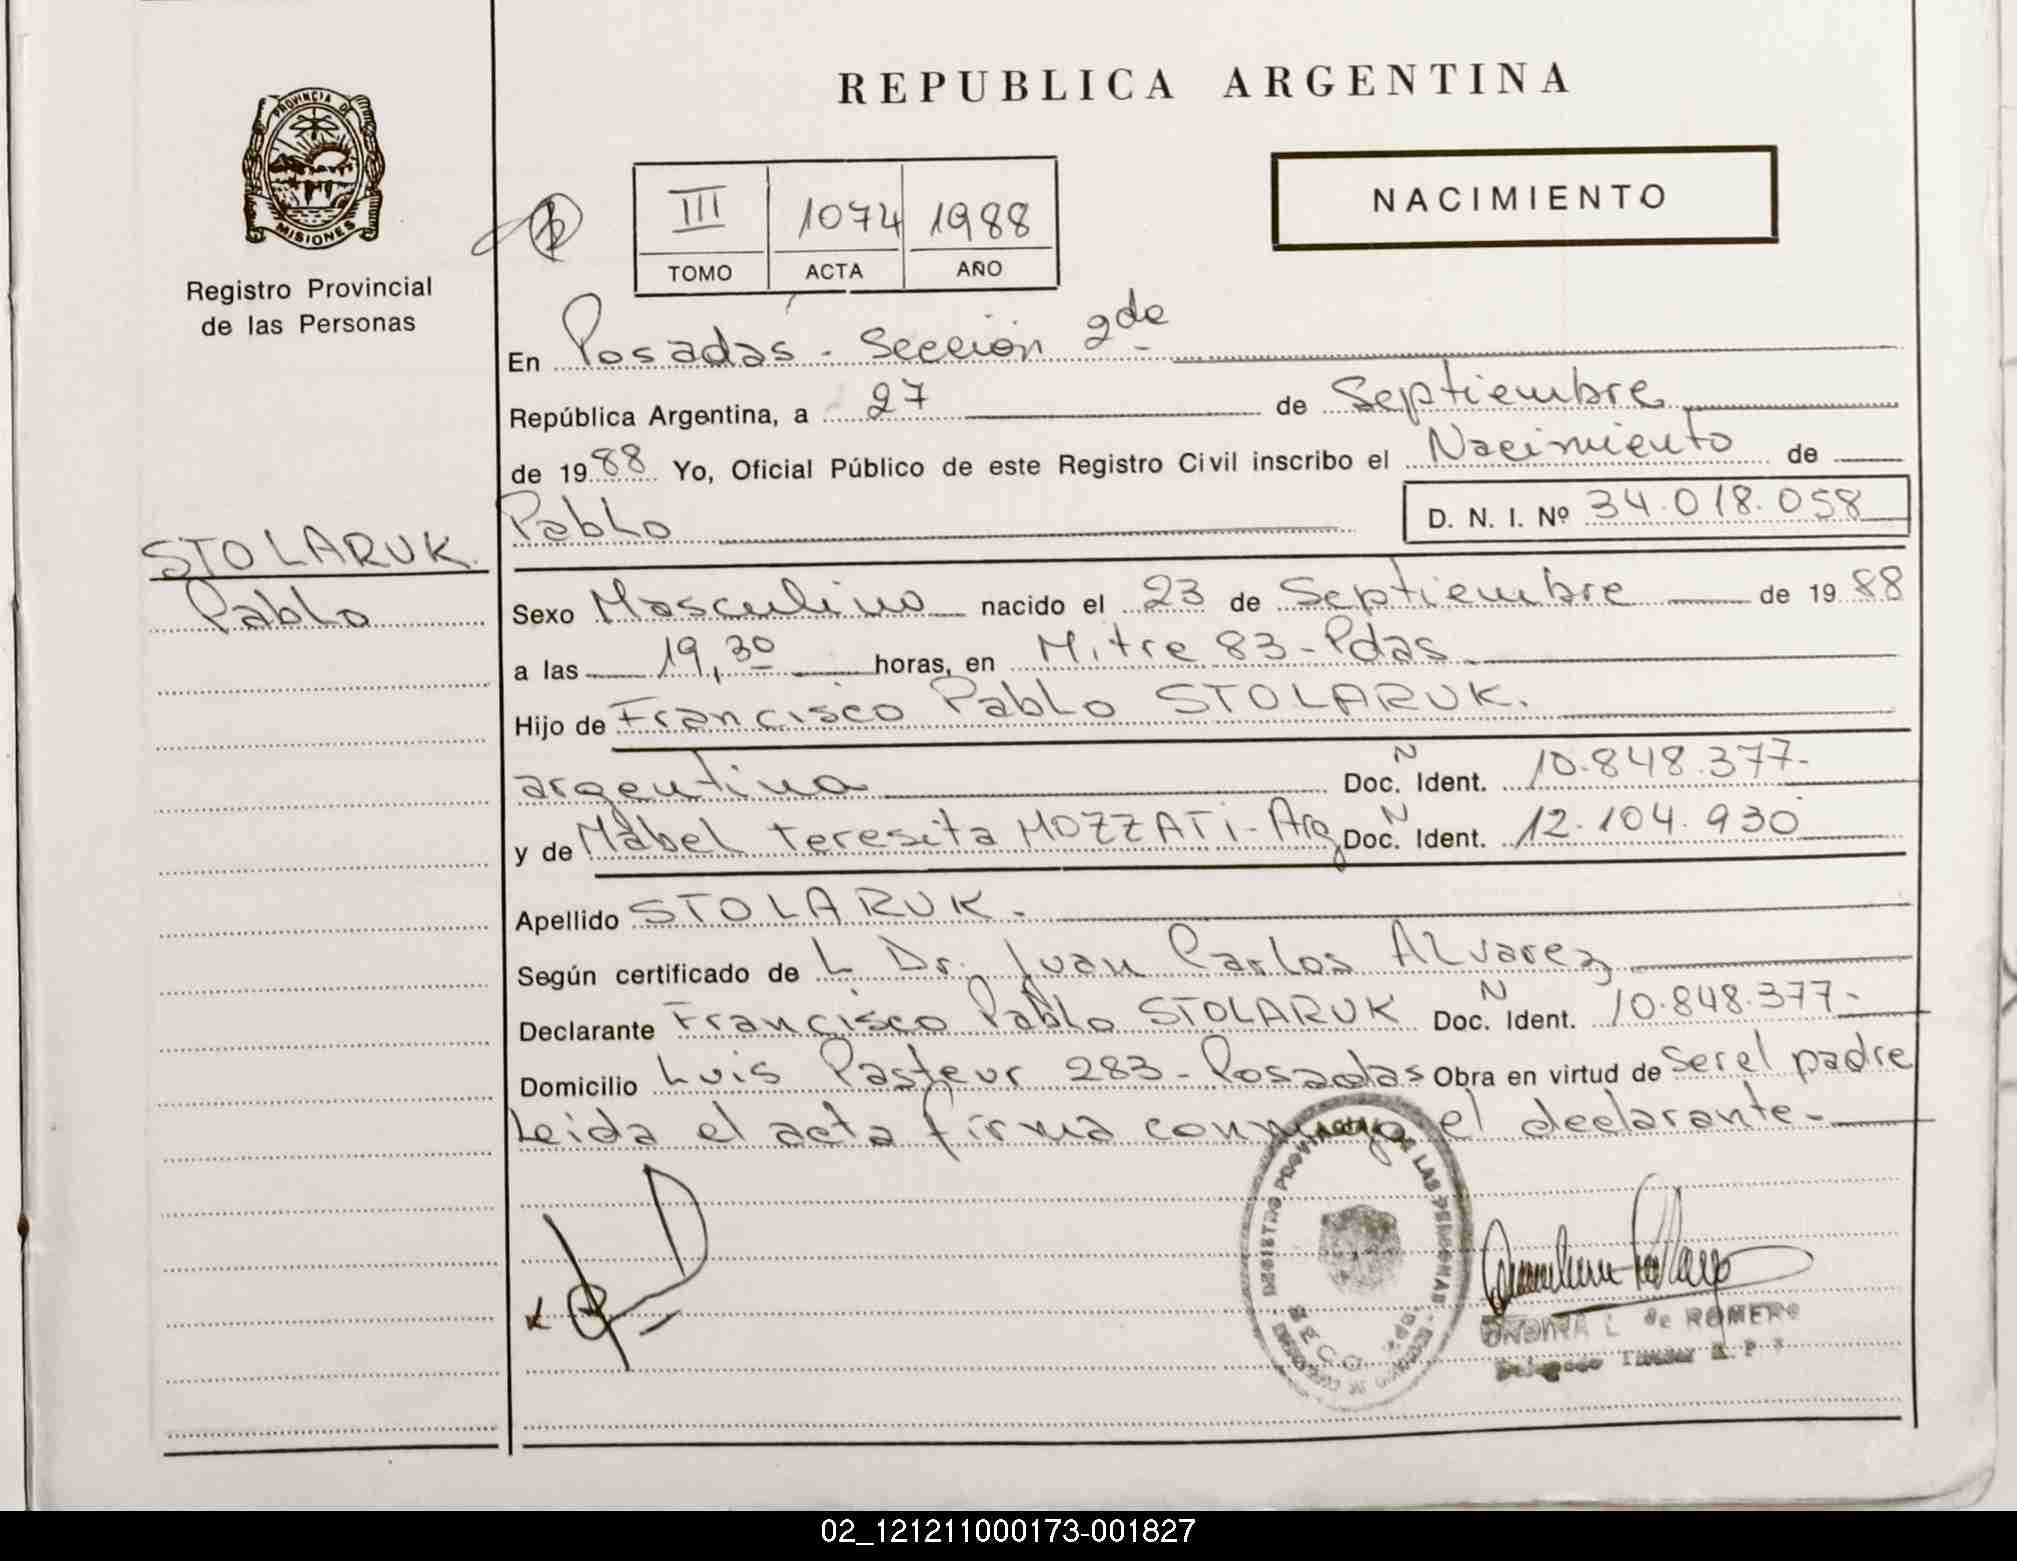 REPUBLICA ARGENTINA
PROVINCIA DE
MISIONES
Registro Provincial
de las Personas
NACIMIENTO
III 1074 1988
TOMO ACTA AÑO
En Posadas - Sección 2da
República Argentina, a 27 de Septiembre
de 1988 Yo, Oficial Público de este Registro Civil inscribo el Nacimiento de
Pablo D. N. I. Nº 34.018.058
STOLARUK.
Pablo
Sexo Masculino nacido el 23 de Septiembre de 1988
a las 19,30 horas, en Mitre 83 - Pdas
Hijo de Francisco Pablo STOLARUK.
argentina Doc. N Ident. 10.848.377-
y de Mabel Teresita MOZZATi - Arg Doc. N Ident. 12.104.930
Apellido STOLARUK.
Según certificado de L Dr. Juan Carlos Alvarez
Declarante Francisco Pablo STOLARUK Doc. N Ident. 10.848.377-
Domicilio Luis Pasteur 283 - Posadas Obra en virtud de Ser el padre
Leida el acta firma conmigo el declarante -
REGISTRO PROVINCIAL DE LAS PERSONAS
L. de ROMERO
02_121211000173-001827